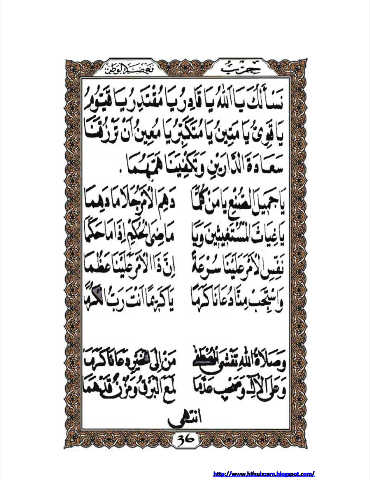 حزب
نسألك يا الله يا قادر يا مقتدر يا قيوم
يا قوي يا متين يا متكبر يا معين أن ترزقنا
سعادة الدارين وتكفينا همهما .
يا جميل الصنع يا من كلما دهم الأمر جلا ما دهما
يا غياث المستغيثين ويا ماضي الحكم إذا ما حكما
نفس الأمر علينا سرعة إن ذا الأمر علينا عظما
واستجب منا دعانا كرما يا كريما أنت رب الكرما
وصلاة الله تغشى المصطفى
وعلى الآل وصحب
انتهى
36
http://www.hifsulxzam.blogspot.com/